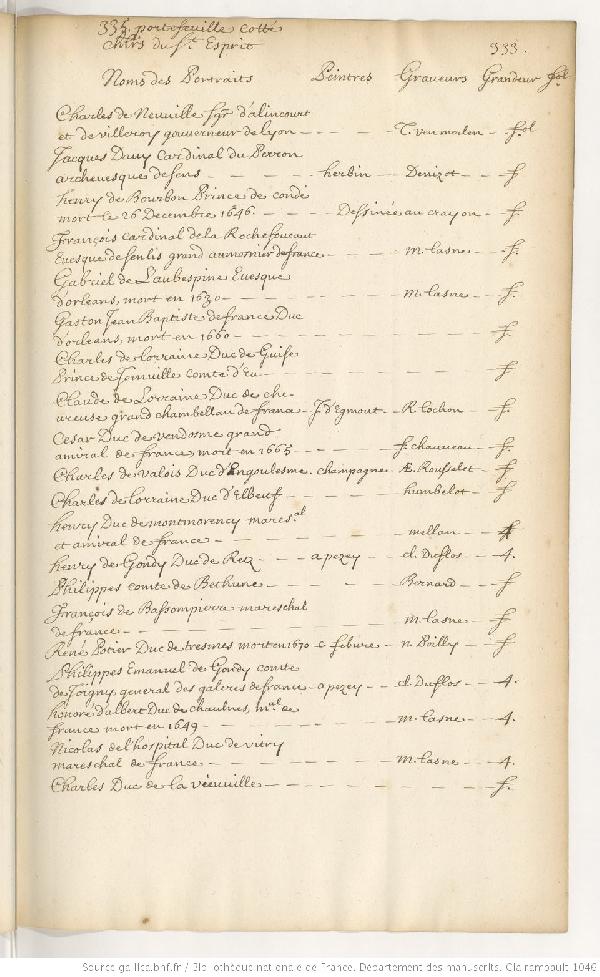 335 portefeuille cotté
chlrs du St. Esprit 333.
Noms des Portraits Peintres Graveurs Grandeur fol
Charles de Neuville sgr d'alincourt
et de villeroy gouverneur de lyon - - - - T. van merlen - fol
Jacques Davy Cardinal du Perron
archevesque de sens - - - - herbin - - Denizot - - f
henry de Bourbon Prince de condé
mort le 26 Decembre 1646. - - - Dessinée au crayon - f.
François Cardinal de la Rochefoucaut
Evesque de senlis grand aumosnier de france - - - m. Lasne - - f.
Gabriel de L'aubespine Evesque
d'orleans, mort en 1630 - - - - m. Lasne - - f.
Gaston Jean Baptiste de france Duc
d'orleans, mort en 1660 - - - - - - f.
Charles de Lorraine Duc de Guise
Prince de Joinville comte d'eu - - - - - - f
Claude de Lorraine Duc de che-
vreuse grand chambellan de france - J. d'Egmont - R. Lochon - f.
Cesar Duc de Vendosme grand
amiral de france mort en 1665 - - - f. chauveau - f.
Charles de Valois Duc d'Angoulesme champagne Æ. Rousselet - f
Charles de Lorraine Duc d'Elbeuf - - - - humbelot - f
henry Duc de montmorency mares.al
et amiral de france - - - - - mellan - - f
henry de Gondy Duc de Retz - - a pezey - cl. Duflos - - 4.
Philippes comte de Bethune - - - - Bernard - - f
François de Bassompierre mareschal
de france - - - - - - m. Lasne - - f
René Potier Duc de tresmes mort en 1670 c. febvre - - n. Poilly - - f
Philippes Emanuel de Gondy comte
de Joigny general des galeres de france - a pezey - - cl. Duflos - - 4.
honoré d'albert Duc de chaulnes, mal. de
france mort en 1649 - - - - - m. Lasne - - 4.
Nicolas de l'hospital Duc de vitry
mareschal de france - - - - - m. Lasne - - 4.
Charles Duc de la vieuville - - - - - - f.
Source gallica.bnf.fr / Bibliothèque nationale de France. Département des manuscrits. Clairembault 1046